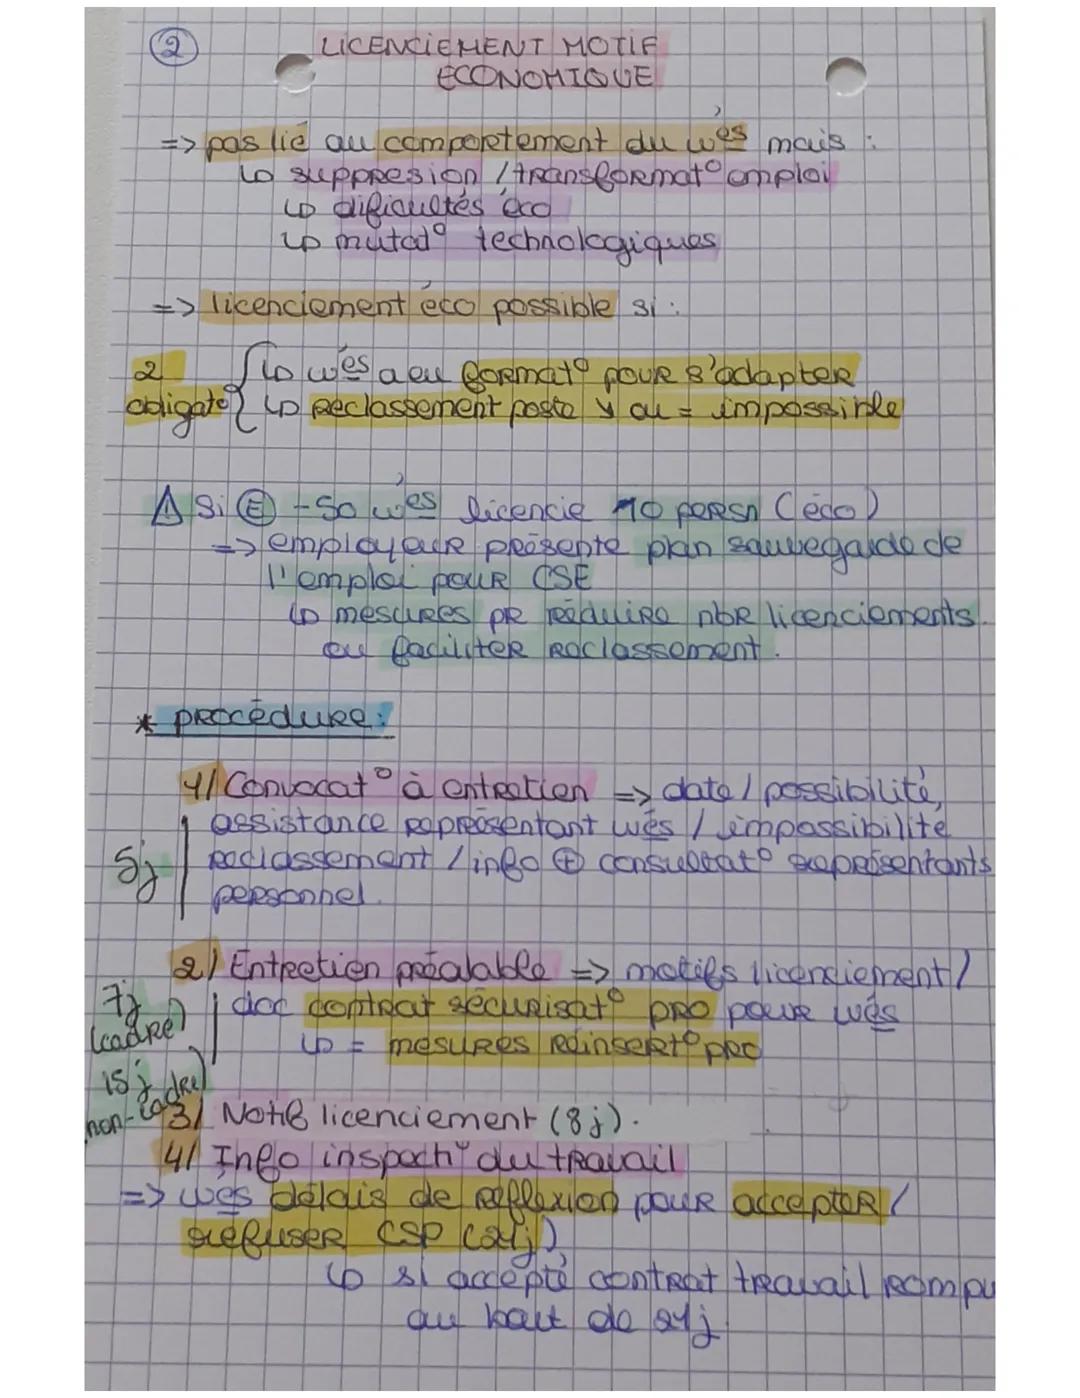 2
LICENCIEMENT MOTIF
ECONOMIQUE
=> pas lié au comportement du wés mais :
↳ suppresion / transformat° emploi
↳ dificultés éco
↳ mutat° technologiques
=> licenciement éco possible si :
2 obligat° { ↳ wés a eu format° pour s'adapter
↳ reclassement poste ou = impossible
⚠ Si (E) +50 wés licencie 10 persn (éco)
=> employeur présente plan sauvegarde de
l'emploi pour CSE
↳ mesures pr réduire nbr licenciements
ou faciliter reclassement.
* procédure :
1/ Convocat° à entretien => date / possibilité,
assistance représentant wés / impossibilité
5j
reclassement / info ⊕ consultat° représentants
personnel.
2/ Entretien préalable => motifs licenciement /
7j (cadre)
doc contrat sécurisat° pro pour wés
↳ = mesures réinsert° pro
15j non-cadre)
3/ Notif licenciement (8j).
4/ Info inspect° du travail
=> wés délais de réflexion pour accepter /
refuser CSP (21j)
↳ si accepté contrat travail rompu
au bout de 21j